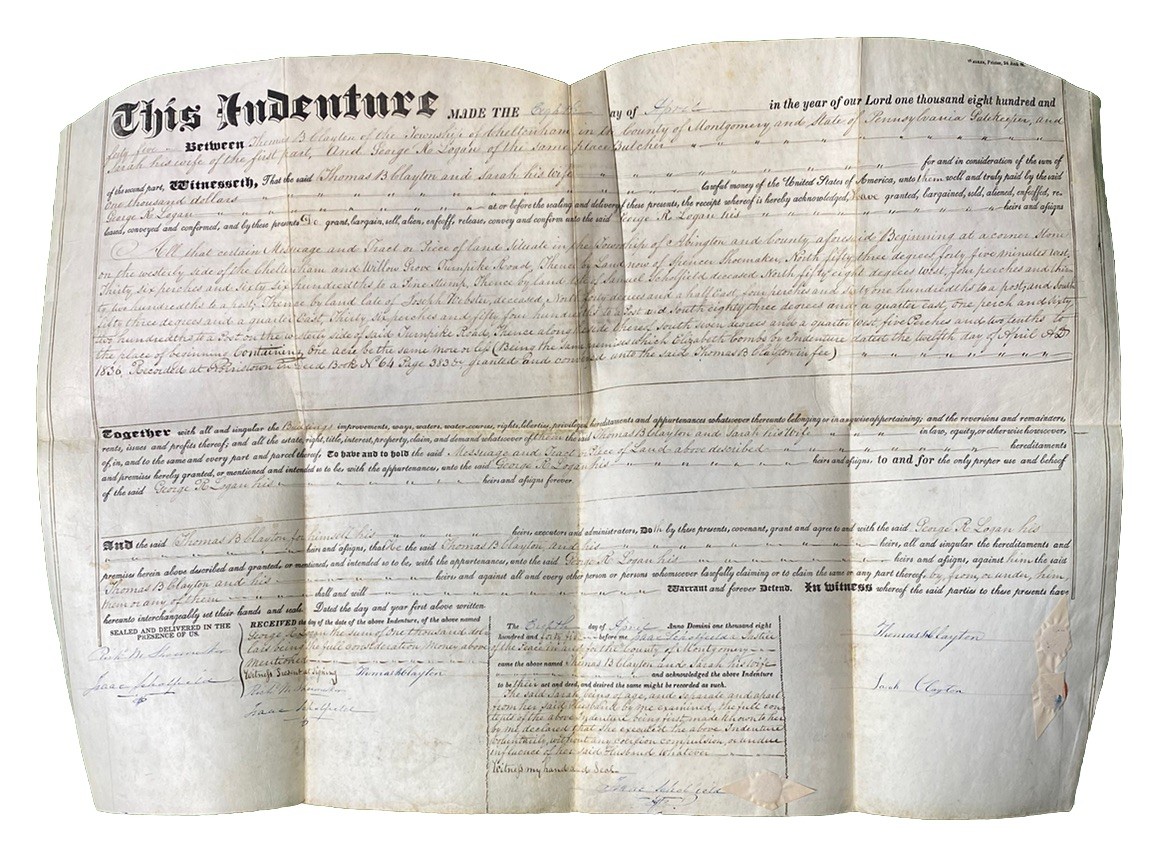 Printer, 24 Arch St.
This Indenture MADE THE Eighth day of April in the year of our Lord one thousand eight hundred and
forty five Between Thomas B Clayton of the Township of Cheltenham in the County of Montgomery and State of Pennsylvania Gatekeeper, and
Sarah his wife of the first part, And George R. Logan of the same place Butcher
of the second part, Witnesseth, That the said Thomas B Clayton and Sarah his wife for and in consideration of the sum of
one thousand dollars lawful money of the United States of America, unto them well and truly paid by the said
George R. Logan at or before the sealing and delivery of these presents, the receipt whereof is hereby acknowledged, have granted, bargained, sold, aliened, enfeoffed, re-
leased, conveyed and confirmed, and by these presents Do grant, bargain, sell, alien, enfeoff, release, convey and confirm unto the said George R. Logan his heirs and assigns
All that certain Messuage and Tract or Piece of land Situate in the Township of Abington and County aforesaid Beginning at a corner stone
on the westerly side of the Cheltenham and Willow Grove Turnpike Road, Thence by Land now of Spencer Shoemaker, North fifty three degrees, forty five minutes west,
Thirty six perches and Sixty six hundredths to a Pine Stump, Thence by land late of Samuel Schoffield deceased North fifty eight degrees west, four perches and thir-
ty two hundredths to a post, Thence by land late of Joseph Webster, deceased, North forty degrees and a half East, four perches and sixty one hundredths to a post, and South
fifty three degrees and a quarter East, Thirty six perches and fifty four hundredths to a Post and South eighty three degrees and a quarter East, one perch and fifty
two hundredths to a Post on the westerly side of said Turnpike Road, Thence along the side thereof South seven degrees and a quarter west, five Perches and two tenths to
the place of beginning Containing One acre be the same more or less (Being the same premises which Elizabeth Combs by Indenture dated the twelfth day of April AD
1836, Recorded at Norristown in Deed Book No 64 Page 383 &c granted and confirmed unto the said Thomas B Clayton in fee)
Together with all and singular the Buildings improvements, ways, waters, water-courses, rights, liberties, privileges, hereditaments and appurtenances whatsoever thereunto belonging or in anywise appertaining; and the reversions and remainders,
rents, issues and profits thereof; and all the estate, right, title, interest, property, claim, and demand whatsoever of them the said Thomas B Clayton and Sarah his wife in law, equity, or otherwise howsoever,
of, in, and to the same and every part and parcel thereof. To have and to hold the said Messuage and Tract or Piece of Land above described hereditaments
and premises hereby granted, or mentioned and intended so to be, with the appurtenances, unto the said George R. Logan his heirs and assigns, to and for the only proper use and behoof
of the said George R. Logan his heirs and assigns forever.
And the said Thomas B Clayton for himself his heirs, executors and administrators, Doth by these presents, covenant, grant and agree to and with the said George R Logan his
heirs and assigns, that he the said Thomas B Clayton and his heirs, all and singular the hereditaments and
premises herein above described and granted, or mentioned, and intended so to be, with the appurtenances, unto the said George R. Logan his heirs and assigns, against him the said
Thomas B Clayton and his heirs and against all and every other person or persons whomsoever lawfully claiming or to claim the same or any part thereof, by, from, or under, him,
them or any of them shall and will Warrant and forever Defend. In witness whereof the said parties to these presents have
hereunto interchangeably set their hands and seals. Dated the day and year first above written.
SEALED AND DELIVERED IN THE
PRESENCE OF US.
Isaac Schoffield
RECEIVED the day of the date of the above Indenture, of the above named
George R. Logan the sum of One thousand dol-
lars being the full consideration Money above
mentioned
Witness Present at signing Thomas B Clayton
Isaac Schoffield
The Eighth day of April Anno Domini one thousand eight
hundred and forty five before me Isaac Schoffield a Justice
of the Peace in and for the County of Montgomery
came the above named Thomas B Clayton and Sarah his wife
and acknowledged the above Indenture
to be their act and deed, and desired the same might be recorded as such.
The said Sarah being of age, and separate and apart
from her said Husband by me examined, the full con-
tents of the above Indenture being first made known to her
by me, declared that she executed the above Indenture
voluntarily, without any coertion compulsion, or undue
influence of her said Husband whatever
Witness my hand and Seal
Isaac Schoffield
Thomas B Clayton
Sarah Clayton